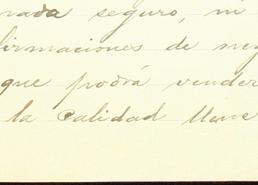 nada seguro, ni
firmaciones de neg
que podrá vender
la Calidad Nueve